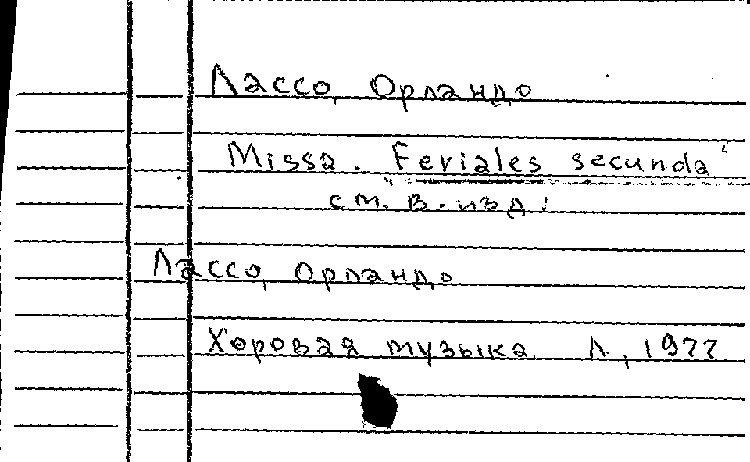 Лассо, Орландо
Missa. "Feriales secunda"
см. в. изд:
Лассо, Орландо
Хоровая музыка Л, 1977